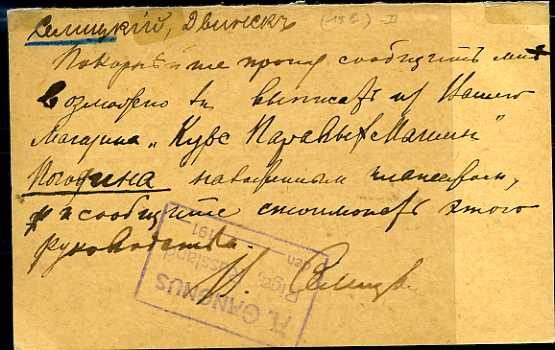 Селицкій, Двинскъ (13 E) II
Покорнѣйше прошу сообщить мнѣ
возможно ли выписать из Вашего
магазина „Курс Паровых Машин"
Погодина наложенным платежом,
и сообщите стоимость этого
руководства.
A. GANGNUS
Riga, Russland
den 191